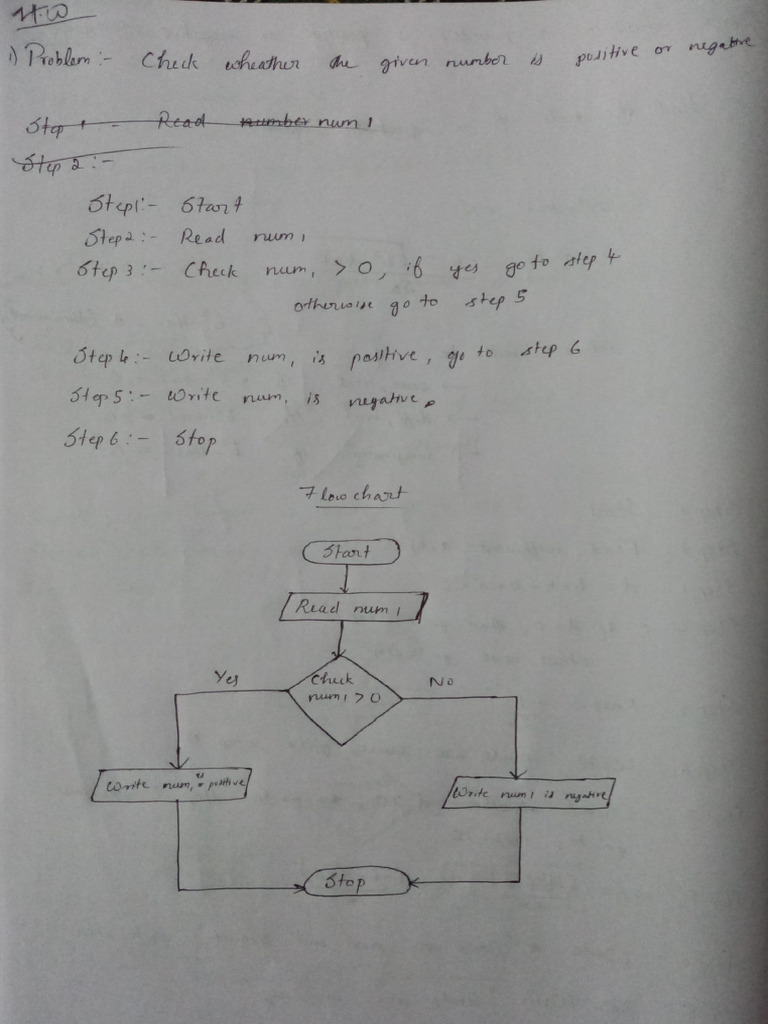 H.W
1) Problem :- Check wheather the given number is positive or negative
Step 1 - Read number num1
Step 2 :-
Step1:- Start
Step2:- Read num1
Step 3:- Check num1 > 0, if yes go to step 4
otherwise go to step 5
Step 4:- Write num1 is positive, go to step 6
Step 5:- Write num1 is negative.
Step 6:- Stop
Flow chart
Start
Read num1
Check
num1 > 0
Yes
No
Write num1 is positive
Write num1 is negative
Stop